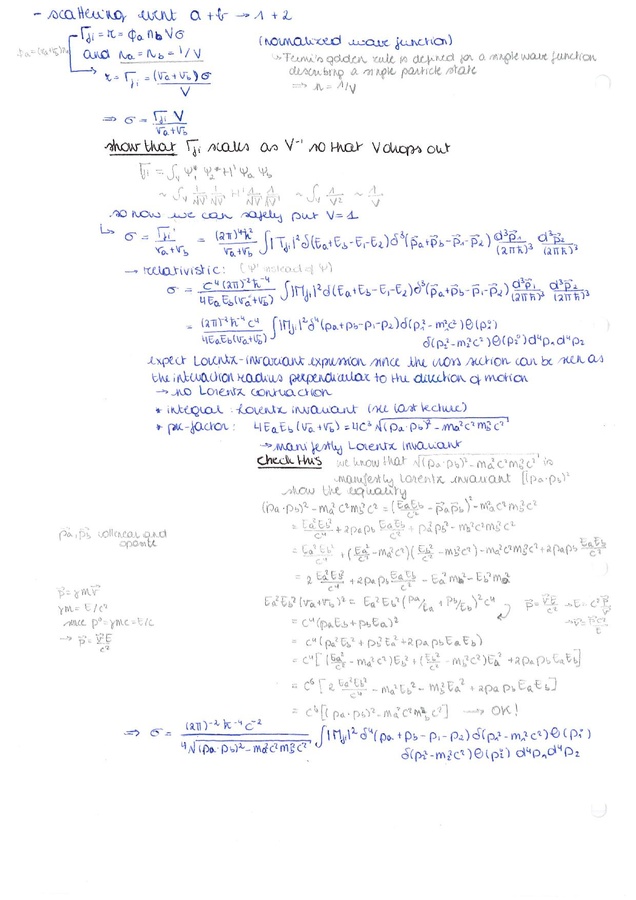 - scattering event a + b → 1 + 2
Γji = r = ϕa nb V σ (normalized wave function)
and na = nb = 1/V ↳ Fermi's golden rule is defined for a single wave function
describing a single particle state
→ r = Γji = (va+vb)σ / V ⇒ n = 1/V
⇒ σ = Γji V / (va+vb)
show that Γji scales as V⁻¹ so that V drops out
Γji = ∫V ψ1* ψ2* H' ψa ψb
~ ∫V 1/√V 1/√V H' 1/√V 1/√V ~ ∫V 1/V² ~ 1/V
so now we can safely put V = 1
↳ σ = Γji / (va+vb) = (2π)⁴ħ² / (va+vb) ∫|Tji|² δ(Ea+Eb-E1-E2) δ³(p⃗a+p⃗b-p⃗1-p⃗2) d³p⃗1/(2πħ)³ d³p⃗2/(2πħ)³
→ relativistic: (ψ' instead of ψ)
σ = c⁴(2π)⁻²ħ⁻⁴ / 4EaEb(va+vb) ∫|Mji|² δ(Ea+Eb-E1-E2) δ³(p⃗a+p⃗b-p⃗1-p⃗2) d³p⃗1/(2πħ)³ d³p⃗2/(2πħ)³
= (2π)⁻²ħ⁻⁴c⁴ / 4EaEb(va+vb) ∫|Mji|² δ⁴(pa+pb-p1-p2) δ(p1²-m1²c²) Θ(p1⁰)
δ(p2²-m2²c²) Θ(p2⁰) d⁴p1 d⁴p2
expect Lorentz-invariant expression since the cross section can be seen as
the interaction radius perpendicular to the direction of motion
→ no Lorentz contraction
* integral: Lorentz invariant (see last lecture)
* pre-factor: 4EaEb(va+vb) = 4c⁴ √((pa·pb)² - ma²c²mb²c²)
→ manifestly Lorentz invariant
check this we know that √((pa·pb)² - ma²c²mb²c²) is
manifestly Lorentz invariant [(pa·pb)²
show the equality
(pa·pb)² - ma²c²mb²c² = (EaEb/c² - p⃗ap⃗b)² - ma²c²mb²c²
p⃗a, p⃗b collinear and
opposite
= Ea²Eb²/c⁴ + 2papb EaEb/c² + pa²pb² - ma²c²mb²c²
= Ea²Eb²/c⁴ + (Ea²/c² - ma²c²)(Eb²/c² - mb²c²) - ma²c²mb²c² + 2papb EaEb/c²
= 2 Ea²Eb²/c⁴ + 2papb EaEb/c² - Ea²mb² - Eb²ma²
p⃗ = γmv⃗
γm = E/c²
since p⁰ = γmc = E/c
→ p⃗ = v⃗E/c²
Ea²Eb²(va+vb)² = Ea²Eb²(pa/Ea + pb/Eb)²c⁴ p⃗ = v⃗E/c² → E = c² p⃗/v⃗
→ v⃗ = p⃗c²/E
= c⁴(paEb + pbEa)²
= c⁴(pa²Eb² + pb²Ea² + 2papbEaEb)
= c⁴[(Ea²/c² - ma²c²)Eb² + (Eb²/c² - mb²c²)Ea² + 2papbEaEb]
= c⁶[2 Ea²Eb²/c⁴ - ma²Eb² - mb²Ea² + 2papbEaEb]
= c⁶[(pa·pb)² - ma²c²mb²c²] → OK!
⇒ σ = (2π)⁻²ħ⁻⁴c⁻² / 4√((pa·pb)² - ma²c²mb²c²) ∫|Mji|² δ⁴(pa+pb-p1-p2) δ(p1²-m1²c²) Θ(p1⁰)
δ(p2²-m2²c²) Θ(p2⁰) d⁴p1 d⁴p2